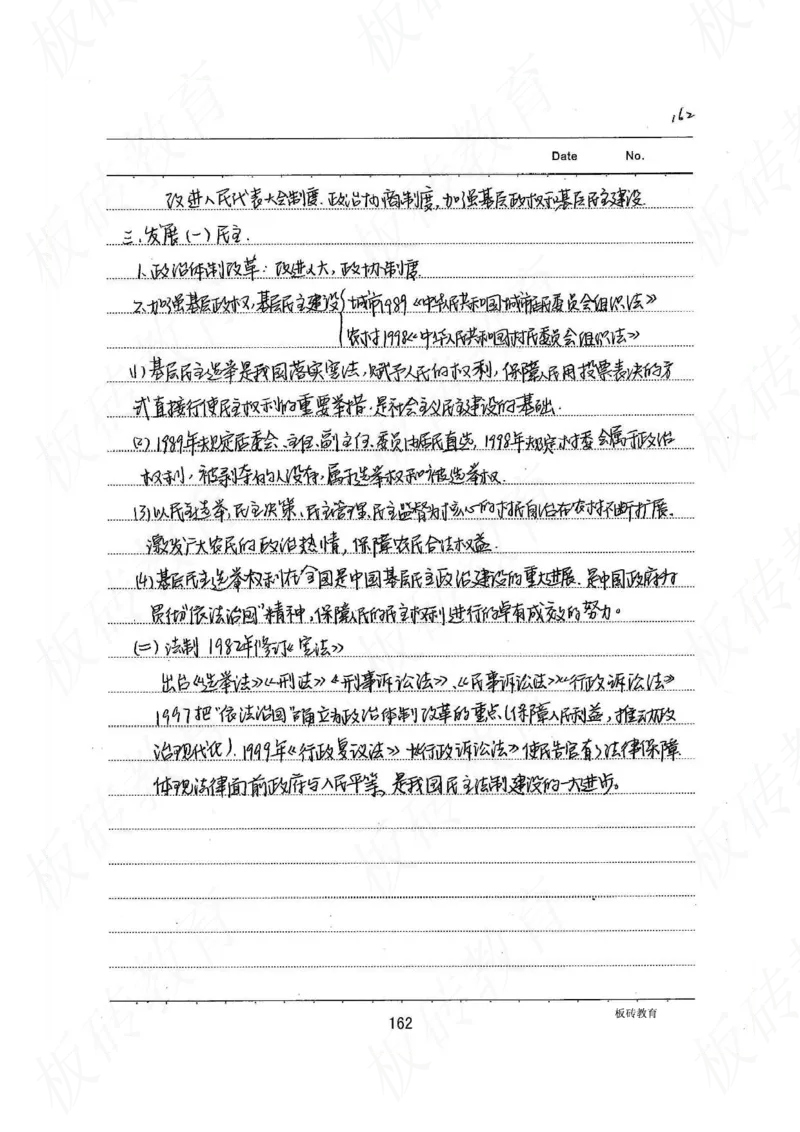 162
Date No.
改进人民代表大会制度、政治协商制度,加强基层政权和基层民主建设
三、发展(一)民主.
1.政治体制改革:改进人大,政协制度
2.加强基层政权,基层民主建设{城市1989《中华人民共和国城市居民委员会组织法》
农村1998《中华人民共和国村民委员会组织法》
(1)基层民主选举是我国落实宪法,赋予人民的权利,保障人民用投票表决的方
式直接行使民主权利的重要举措,是社会主义民主建设的基础.
(2).1989年规定居委会、主任、副主任、委员由居民直选,1998年规定村委会属于政治
权利,被剥夺的人没有,属于选举权和被选举权.
(3)以民主选举,民主决策、民主管理、民主监督为核心的村民自治在农村不断扩展.
激发广大农民的政治热情,保障农民合法权益.
(4)基层民主选举权利在全国是中国基层民主政治建设的重大进展.是中国政府为
贯彻“依法治国”精神,保障人民的民主权利进行的卓有成效的努力。
(二)法制 1982年修订《宪法》
出台《选举法》《刑法》《刑事诉讼法》、《民事诉讼法》《行政诉讼法》
1997把“依法治国”确立为政治体制改革的重点.(保障人民利益,推动政
治现代化).1999年《行政复议法》《行政诉讼法》使民告官有法律保障
体现法律面前政府与人民平等,是我国民主法制建设的一大进步。
162
板砖教育